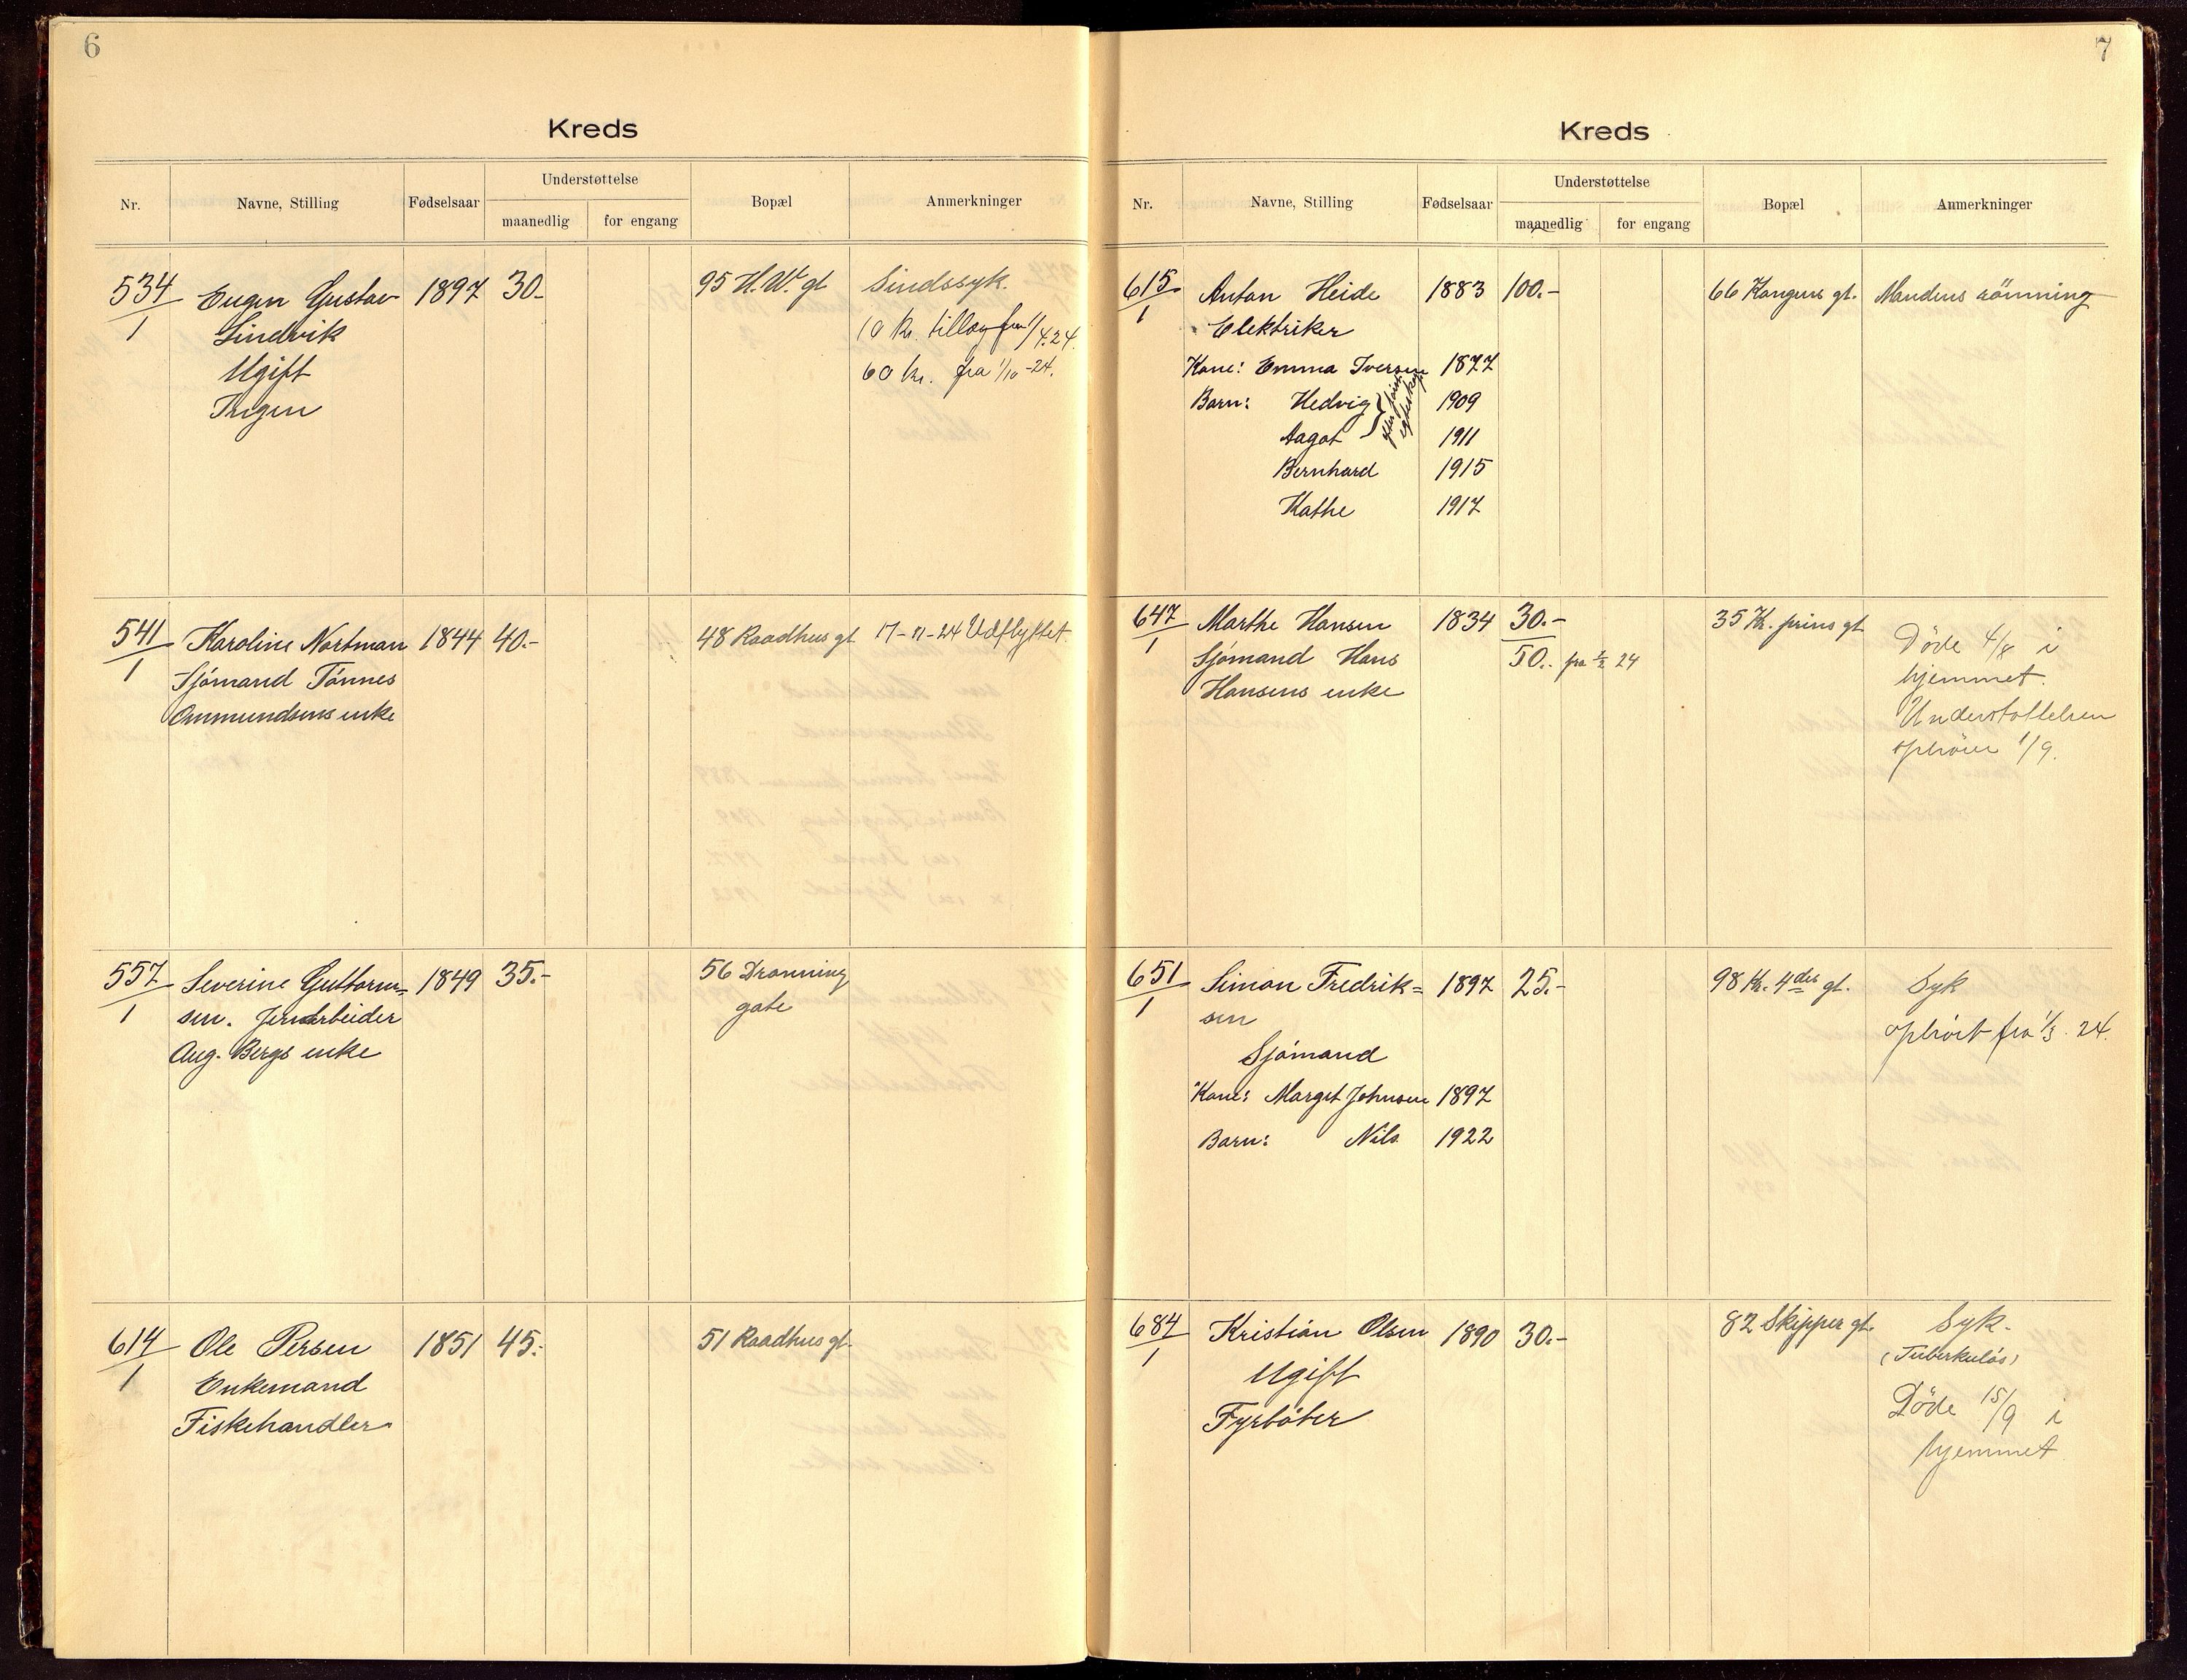 6
Kreds
Nr. Navne, Stilling Fødselsaar Understøttelse maanedlig for engang Bopæl Anmerkninger
534/1 Eugen Gustav 1897 30.- 95 H.W. gt Sindssyk.
Lindvik 10 kr. tillæg fra 1/4.24.
Ugift 60 kr. fra 1/10-24.
Ingen
541/1 Karoline Nortman 1844 40.- 48 Raadhus gt 17-11-24 Udflyttet.
Sjømand Tønnes
Ommundsens enke
557/1 Severine Guttorm= 1849 35.- 56 Dronning
sen. Jernarbeider gate
Aug. Bergs enke
614/1 Ole Persen 1851 45.- 51 Raadhus gt.
Enkemand
Fiskehandler
7
Kreds
Nr. Navne, Stilling Fødselsaar Understøttelse maanedlig for engang Bopæl Anmerkninger
615/1 Anton Heide 1883 100.- 66 Kongens gt. Mandens römning
Elektriker
Kone: Emma Iversen 1877
Barn: Hedvig } 1909
Aagot 1911
Bernhard 1915
Kathe 1917
647/1 Marthe Hansen 1834 30.- 35 Kr. prins gt
Sjømand Hans 50.- fra 1/2 24 Døde 4/8 i
Hansens enke hjemmet.
Understøttelsen
ophører 1/9.
651/1 Simon Fredrik= 1897 25.- 98 Kr. 4des gt. Syk
sen ophört fra 1/3. 24.
Sjømand
Kone: Margit Johnsen 1897
Barn: Nils 1922
684/1 Kristian Olsen 1890 30.- 82 Skipper gt. Syk.
Ugift (Tuberkuløs)
Fyrbøter Døde 15/9 i
hjemmet